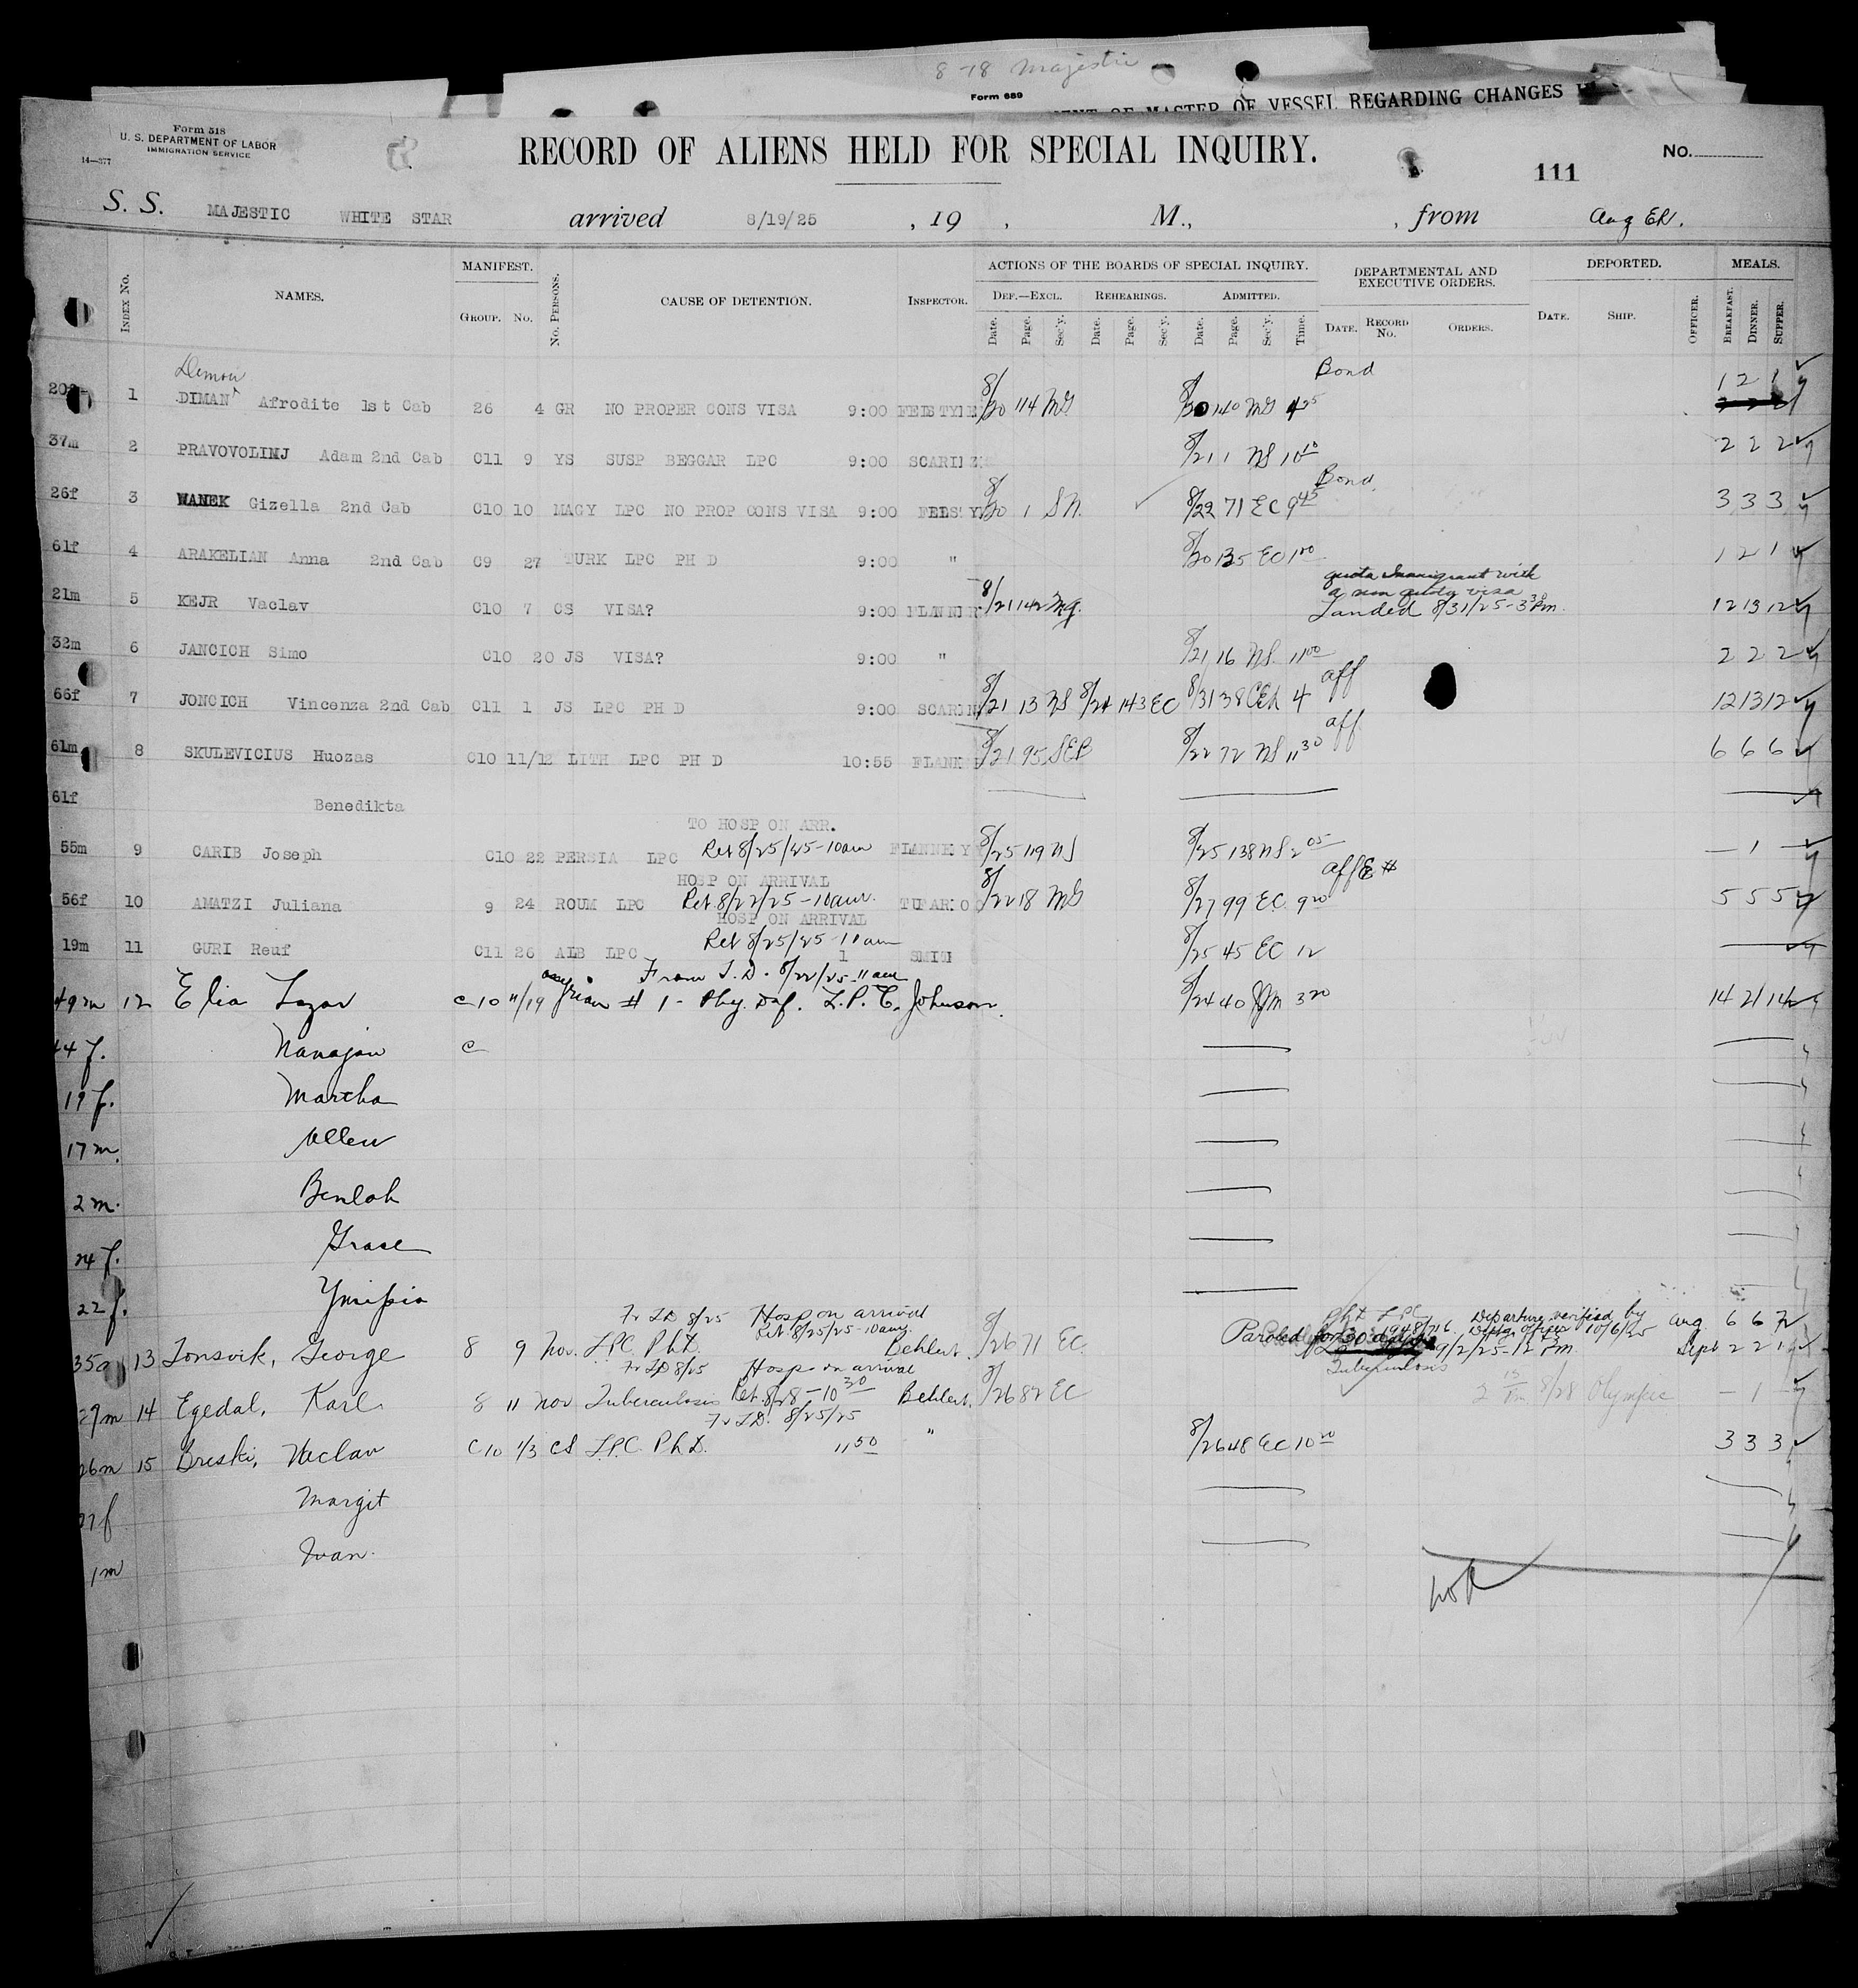 8-18 Majestic
Form 689
OF MASTER OF VESSEL REGARDING CHANGES
Form 518
U. S. DEPARTMENT OF LABOR
IMMIGRATION SERVICE
14—377
RECORD OF ALIENS HELD FOR SPECIAL INQUIRY.
No.
111
S. S. MAJESTIC WHITE STAR arrived 8/19/25 , 19 , M., , from
Index No. NAMES. MANIFEST. GROUP. No. No. PERSONS. CAUSE OF DETENTION. INSPECTOR. ACTIONS OF THE BOARDS OF SPECIAL INQUIRY. DEPARTMENTAL AND EXECUTIVE ORDERS. DEPORTED. MEALS.
DEF.—EXCL. REHEARINGS. ADMITTED.
Date. Page. Sec'y. Date. Page. Sec'y. Date. Page. Sec'y. Time. DATE. RECORD No. ORDERS. DATE. SHIP. OFFICER. BREAKFAST. DINNER. SUPPER.
Bond
1 DIMAN Afrodite 1st Cab 26 4 GR NO PROPER CONS VISA 9:00 8/20 114 MG 8/20 140 MG 4 25 1 2 1
37m 2 PRAVOVOLIMJ Adam 2nd Cab C11 9 YS SUSP BEGGAR LPC 9:00 8/21 1 NS 10 2 2 2
Bond
26f 3 WANEK Gizella 2nd Cab C10 10 MAGY LPC NO PROP CONS VISA 9:00 8/20 1 SN. 8/22 71 EC 9 45 3 3 3
61f 4 ARAKELIAN Anna 2nd Cab C9 27 TURK LPC PH D 9:00 " 8/20 135 EC 1 00 1 2 1
quota Immigrant with
a non quota visa
21m 5 KEJR Vaclav C10 7 CS VISA? 9:00 8/21 142 MG. Landed 8/31/25 - 3 30 Pm. 12 13 12
32m 6 JANCICH Simo C10 20 JS VISA? 9:00 " 8/21 16 NS. 11 00 2 2 2
aff
66f 7 JONCICH Vincenza 2nd Cab C11 1 JS LPC PH D 9:00 8/21 13 NS 8/24 143 EC 8/31 38 CEH 4 12 13 12
aff.
61m 8 SKULEVICIUS Huozas C10 11/12 LITH LPC PH D 10:55 8/21 95 SEB 8/22 72 NS 11 30 6 6 6
61f Benedikta
TO HOSP ON ARR.
55m 9 CARIB Joseph C10 22 PERSIA LPC Ret 8/25/25 - 10am 8/25 119 NS 8/25 138 NS 2 05 — 1 —
HOSP ON ARRIVAL
56f 10 AMATZI Juliana 9 24 ROUM LPC Ret. 8/22/25 - 10am. 8/22 18 MG 8/27 99 EC. 9 20 5 5 5
HOSP ON ARRIVAL
19m 11 GURI Reuf C11 26 ALB LPC Ret 8/25/25 - 11am 1 SMITH 8/25 45 EC 12
From T. D. 8/22/25 - 11am
49m 12 Elia Lazar C10 11/19 # 1 - Phy. Def. L. P. C. Johnson. 8/24 40 3 20 14 21 14
44 f. Nanajan C
19 f. Martha
17 m. Allen
2 m. Benlah
24 f. Grace
22 f.
Fr TD 8/25 Hosp on arrival
Ret. 8/25/25 - 10am. Departure verified by 10/6/25 Aug. 6 6 7
35 13 Tonsvik, George 8 9 Nor. LPC. Ph D. Behlert. 8/26 71 EC. Paroled for 30 days 9/2/25 - 12 Pm. Sept 2 2 1
Fr TD 8/25 Hosp on arrival Tuberculosis
29m 14 Egedal, Karl 8 11 Nor Tuberculosis Ret. 8/28 - 10 30 Behlert. 8/26 82 EC 8/28 Olympic — 1
Fr TD. 8/25/25
26m 15 Breski, Veclav C10 1/3 CS LPC. Ph D. 11 50 " 8/26 48 EC 10 20 3 3 3
Margit
1m Ivan.